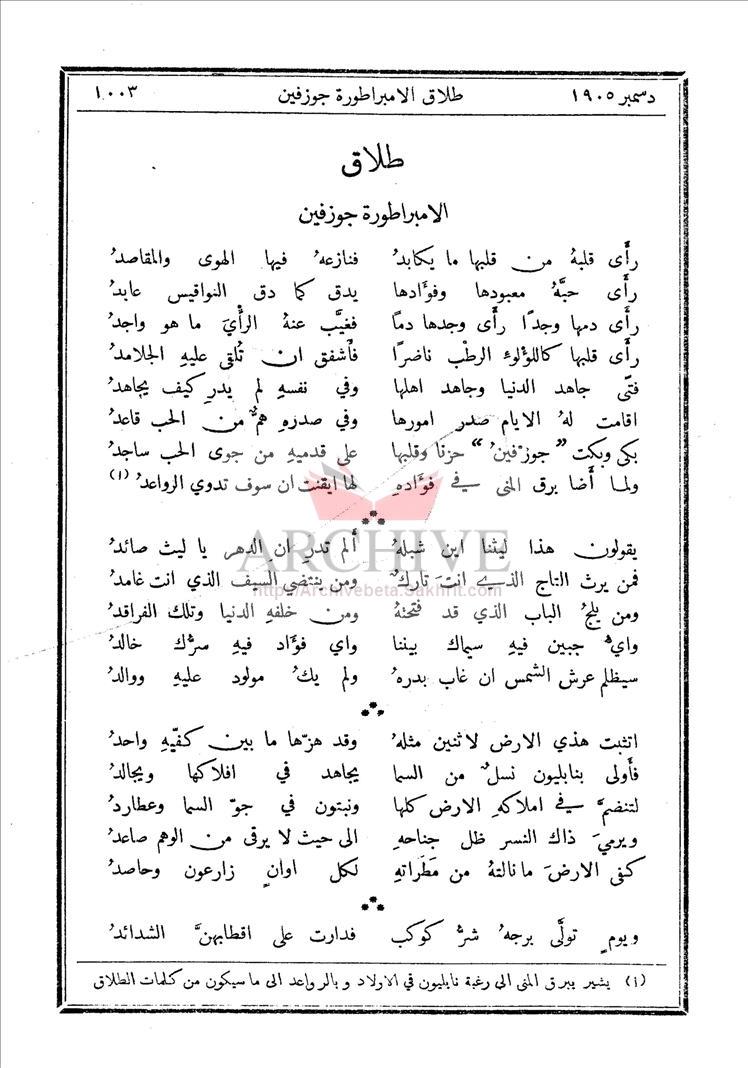 دسمبر ١٩٠٥ طلاق الامبراطورة جوزفين ١٠٠٣
طلاق
الامبراطورة جوزفين
رأى قلبهُ من قلبها ما يكابدُ فنازعهُ فيها الهوى والمقاصدُ
رأى حبَّهُ معبودها وفوَّادها يدق كما دق النواقيس عابدُ
رأى دمها وجدًا رأى وجدها دمًا فغيَّب عنهُ الرأيَ ما هو واجدُ
رأى قلبها كاللؤلوءِ الرطْب ناضرًا فأشفق ان تُلقى عليهِ الجلامدُ
فتًى جاهد الدنيا وجاهد اهلها وفي نفسهِ لم يدرِ كيف يجاهدُ
اقامت لهُ الايام صدر امورها وفي صدرهِ همٌّ من الحب قاعدُ
بكى وبكت "جوزفينُ" حزنا وقلبها على قدميهِ من جوى الحب ساجدُ
ولما أضا برق المنى في فوَّادهِ لها ايقنت ان سوف تدوي الرواعدُ (١)
يقولون هذا ليثنا اين شبلهُ ألم تدرِ ان الدهر يا ليث صائدُ
فمن يرث التاج الذي انتَ تاركٌ ومن ينتضي السيف الذي انت غامدُ
ومن يلجُ الباب الذي قد فتحتهُ ومن خلفهِ الدنيا وتلك الفراقدُ
وايُّ جبين فيهِ سيماك بيننا واي فوَّاد فيهِ سرُّك خالدُ
سيظلم عرش الشمس ان غاب بدرهُ ولم يكُ مولود عليهِ ووالدُ
اتثبت هذي الارض لاثنين مثلهُ وقد هزّها ما بين كفّيهِ واحدُ
فأولى بنابليون نسلٌ من السما يجاهد في افلاكها ويجالدُ
لتنضمَّ في املاكهِ الارض كلها ونبتون في جوّ السما وعطاردُ
ويرميَ ذاك النسر ظل جناحهِ الى حيث لا يرقى من الوهم صاعدُ
كفى الارضَ ما نالتهُ من مَطَراتهِ لكل اوانٍ زارعون وحاصدُ
ويومٍ تولَّى برجهُ شرُّ كوكب فدارت على اقطابهنَّ الشدائدُ
(١) يشير ببرق المنى الى رغبة نابليون في الاولاد وبالرواعد الى ما سيكون من كلمات الطلاق
ARCHIVE
http://Archivebeta.Sakhrit.com